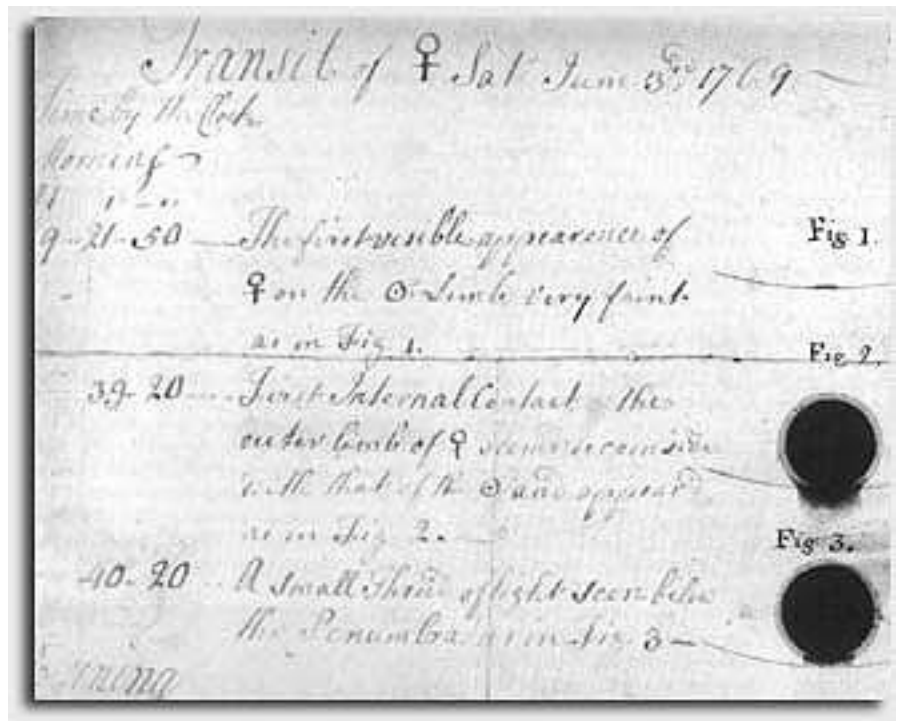 Transit of ♀ Sat June 3rd 1769
Time by the Clock
Morning
H ' "
9 - 21 - 50 — The first visible appearence of
Fig 1.
♀ on the ☉s Limb very faint
as in Fig 1.
Fig 2.
39 - 20 — First Internal Contact the
outer limb of ♀ coincide
with that of the ☉ and appear'd
as in Fig 2.
Fig 3.
40 - 20 A small Thread of light seen below
the Penumbra as in Fig 3 —